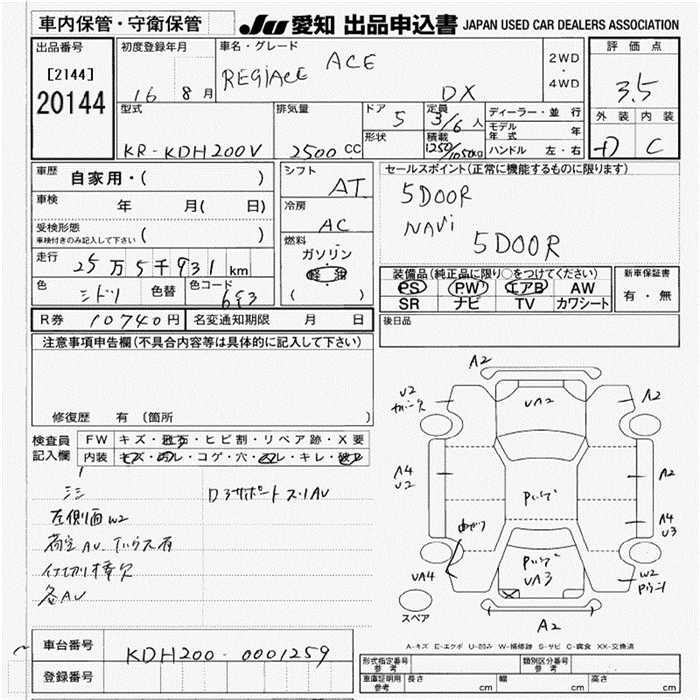 車内保管・守衛保管
JU 愛知 出品申込書 JAPAN USED CAR DEALERS ASSOCIATION
出品番号
[2144]
20144
初度登録年月
16 8月
車名・グレード
REGiACE ACE
DX
2WD
・
4WD
評価点
3.5
外装 内装
D C
型式
KR-KDH200V
排気量
2500CC
ドア
5
形状
定員
3/6人
積載
1250/1050kg
ディーラー・並行
モデル年式 年
ハンドル 左・右
車歴
自家用・( )
車検
年 月( 日)
受検形態
車検付きのみ記入して下さい ( )
走行
25万5千931km
色
色替
色コード
6E3
シフト
AT
冷房
AC
燃料
ガソリン
軽油
( )
セールスポイント(正常に機能するものに限ります)
5DOOR
NAVi
5DOOR
装備品(純正品に限り○をつけてください)
PS PW エアB AW
SR ナビ TV カワシート
新車保証書
有・無
R券 10740円
名変通知期限 月 日
後日品
注意事項申告欄(不具合内容等は具体的に記入して下さい)
修復歴 有 (箇所 )
検査員記入欄
FW キズ・飛石・ヒビ割・リペア跡・X要
内装 キズ・汚レ・コゲ・穴・スレ・キレ・破レ
左側面W2
各AU
A2
UA2
U2
A2
A4
U2
A4
U3
UA4
UA3
W2
A2
スペア
A-キズ E-エクボ U-凹み W-補修跡 S-サビ C-腐食 XX-交換済
車台番号
KDH200-0001259
登録番号
形式指定番号
参考
類別区分番号
参考
車庫証明用
参考
長さ cm
幅 cm
高さ cm